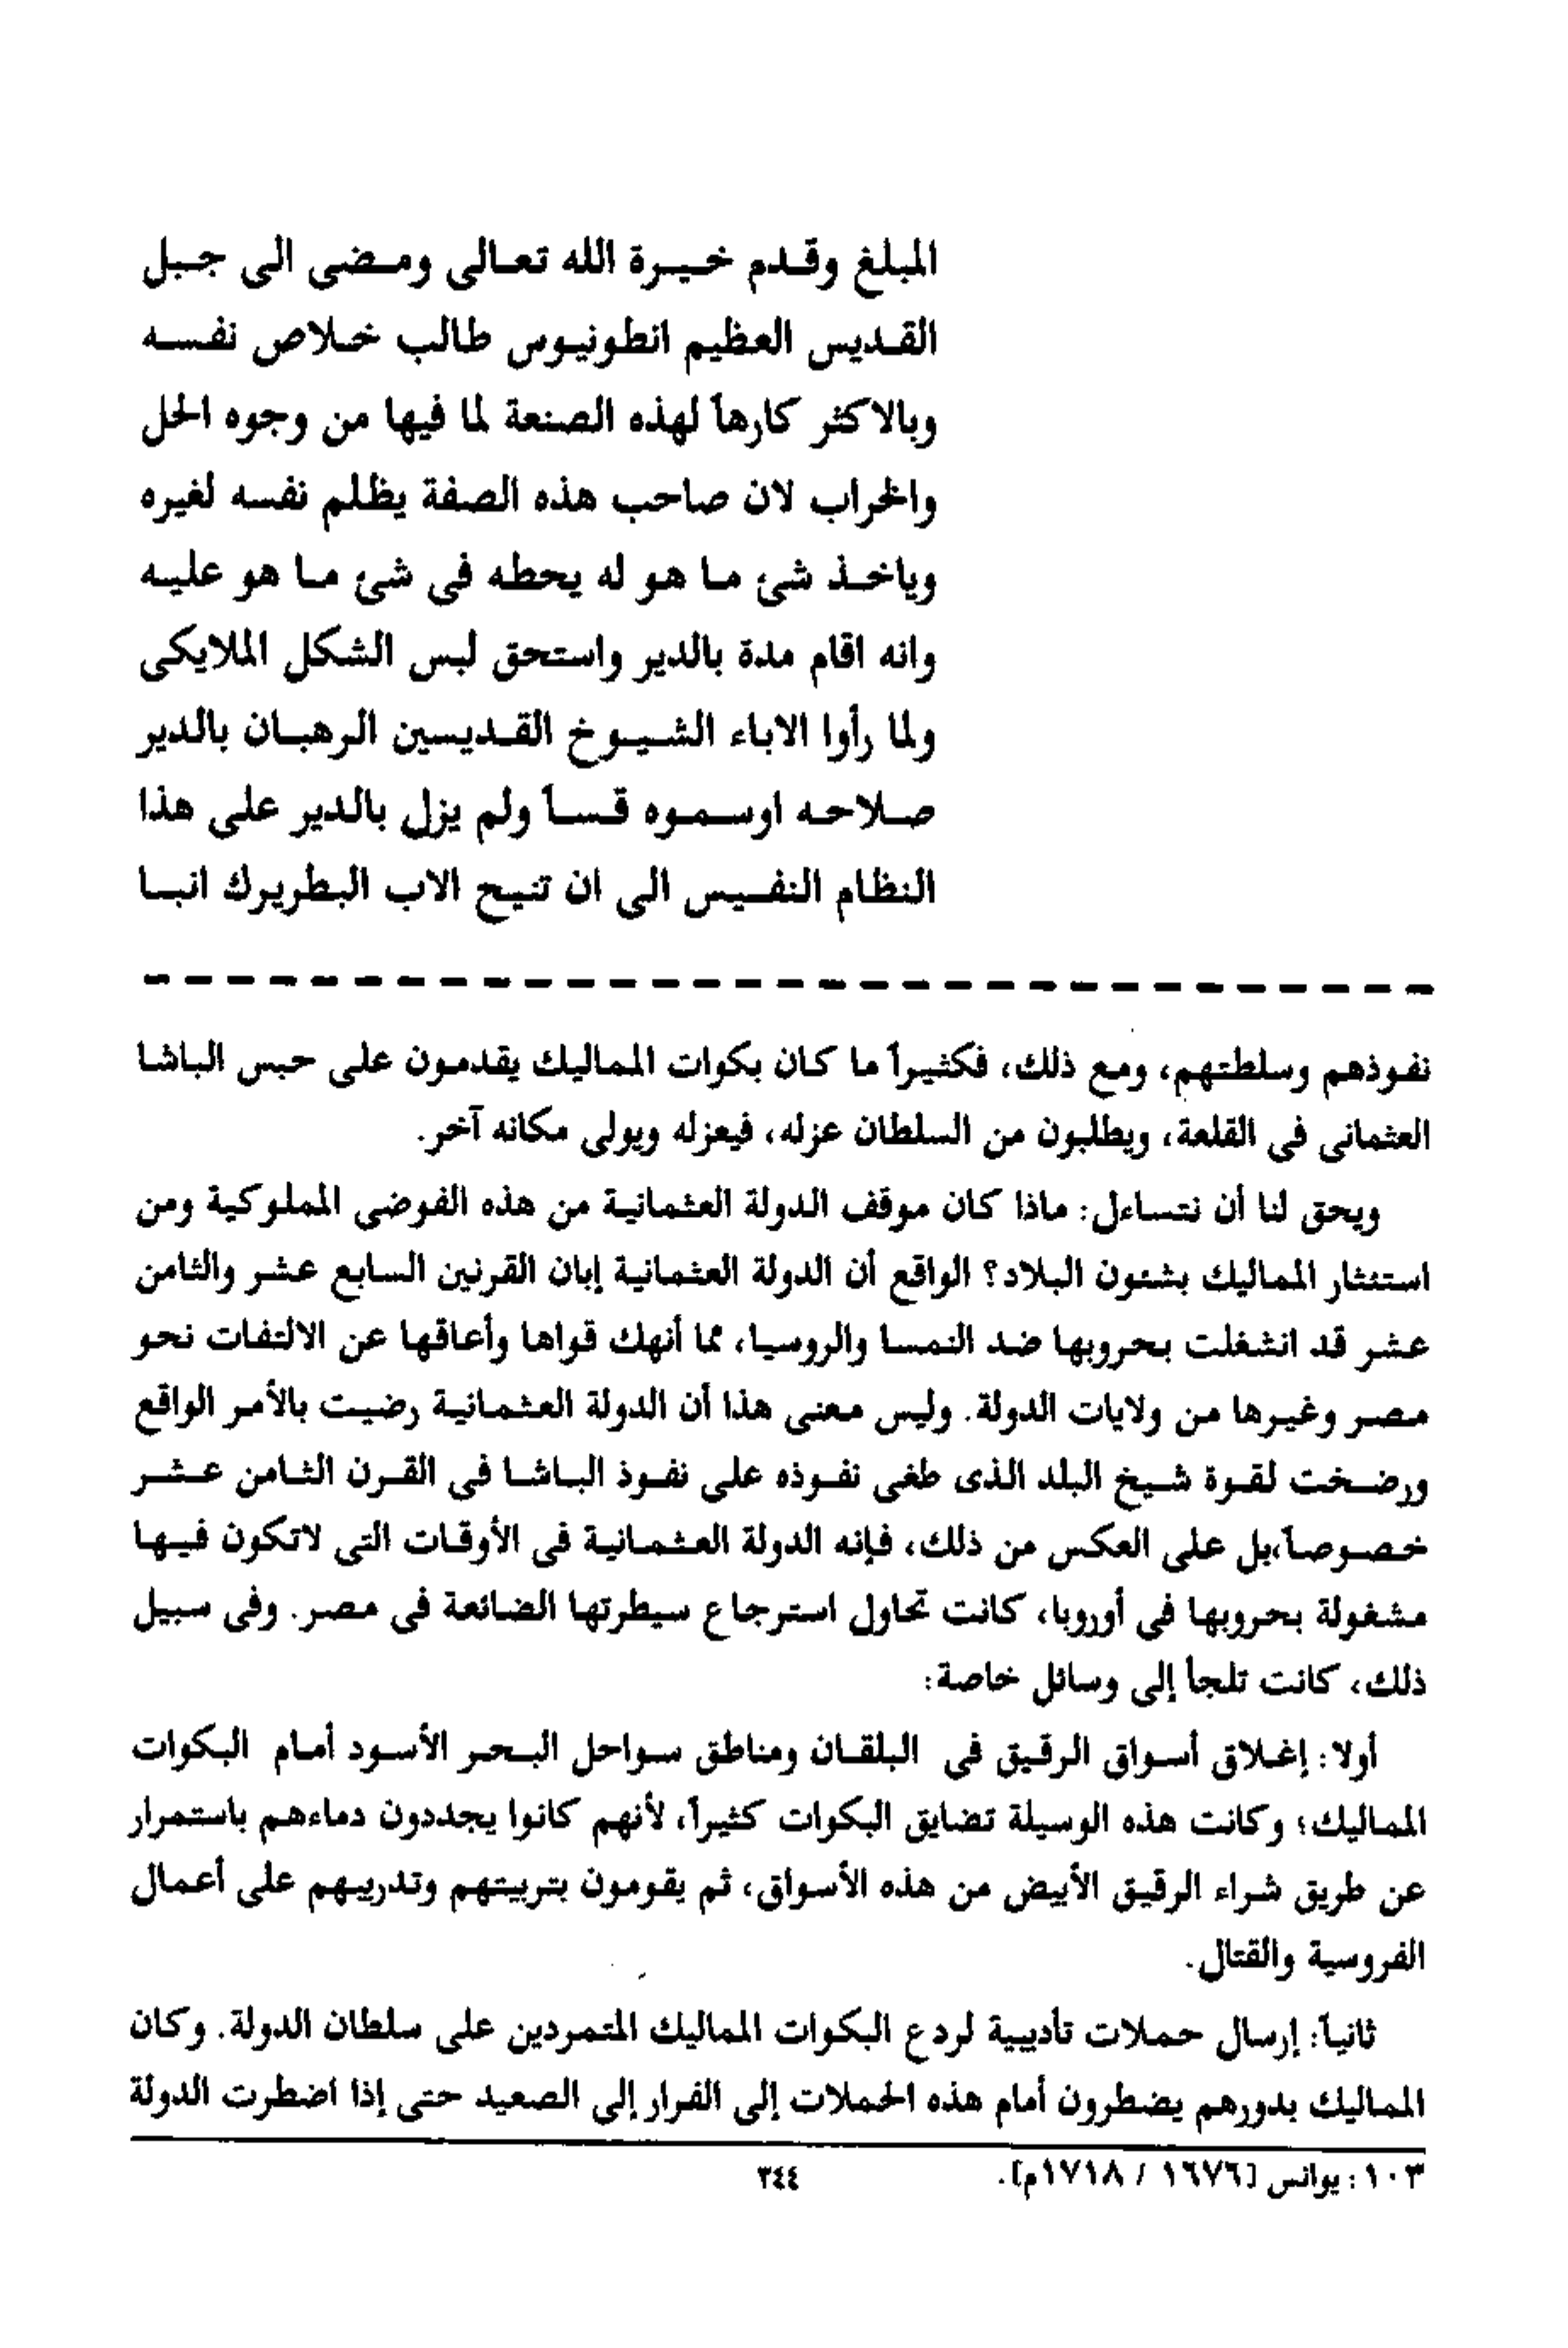 المبلغ وقدم خيرة الله تعالى ومضى الى جبل
القديس العظيم انطونيوس طالب خلاص نفسه
وبالاكثر كارهاً لهذه الصنعة لما فيها من وجوه الحل
والخراب لان صاحب هذه الصفة يظلم نفسه لغيره
وياخذ شئ ما هو له يحطه فى شئ ما هو عليه
وانه اقام مدة بالدير واستحق لبس الشكل الملايكى
ولما رأوا الاباء الشيوخ القديسين الرهبان بالدير
صلاحه اوسموه قساً ولم يزل بالدير على هذا
النظام النفيس الى ان تنيح الاب البطريرك انبا
نفوذهم وسلطتهم، ومع ذلك، فكثيراً ما كان بكوات المماليك يقدمون على حبس الباشا
العثمانى فى القلعة، ويطلبون من السلطان عزله، فيعزله ويولى مكانه آخر.
ويحق لنا أن نتساءل: ماذا كان موقف الدولة العثمانية من هذه الفوضى المملوكية ومن
استئثار المماليك بشئون البلاد؟ الواقع أن الدولة العثمانية إبان القرنين السابع عشر والثامن
عشر قد انشغلت بحروبها ضد النمسا والروسيا، مما أنهك قواها وأعاقها عن الالتفات نحو
مصر وغيرها من ولايات الدولة. وليس معنى هذا أن الدولة العثمانية رضيت بالأمر الواقع
ورضخت لقوة شيخ البلد الذى طغى نفوذه على نفوذ الباشا فى القرن الثامن عشر
خصوصاً،بل على العكس من ذلك، فإنه الدولة العثمانية فى الأوقات التى لاتكون فيها
مشغولة بحروبها فى أوروبا، كانت تحاول استرجاع سيطرتها الضائعة فى مصر. وفى سبيل
ذلك، كانت تلجأ إلى وسائل خاصة:
أولا: إغلاق أسواق الرقيق فى البلقان ومناطق سواحل البحر الأسود أمام البكوات
المماليك؛ وكانت هذه الوسيلة تضايق البكوات كثيراً، لأنهم كانوا يجددون دماءهم باستمرار
عن طريق شراء الرقيق الأبيض من هذه الأسواق، ثم يقومون بتربيتهم وتدريبهم على أعمال
الفروسية والقتال.
ثانياً: إرسال حملات تأديبية لردع البكوات المماليك المتمردين على سلطان الدولة. وكان
المماليك بدورهم يضطرون أمام هذه الحملات إلى الفرار إلى الصعيد حتى إذا اضطرت الدولة
١٠٣: يوانس [١٦٧٦ / ١٧١٨م].
٣٤٤